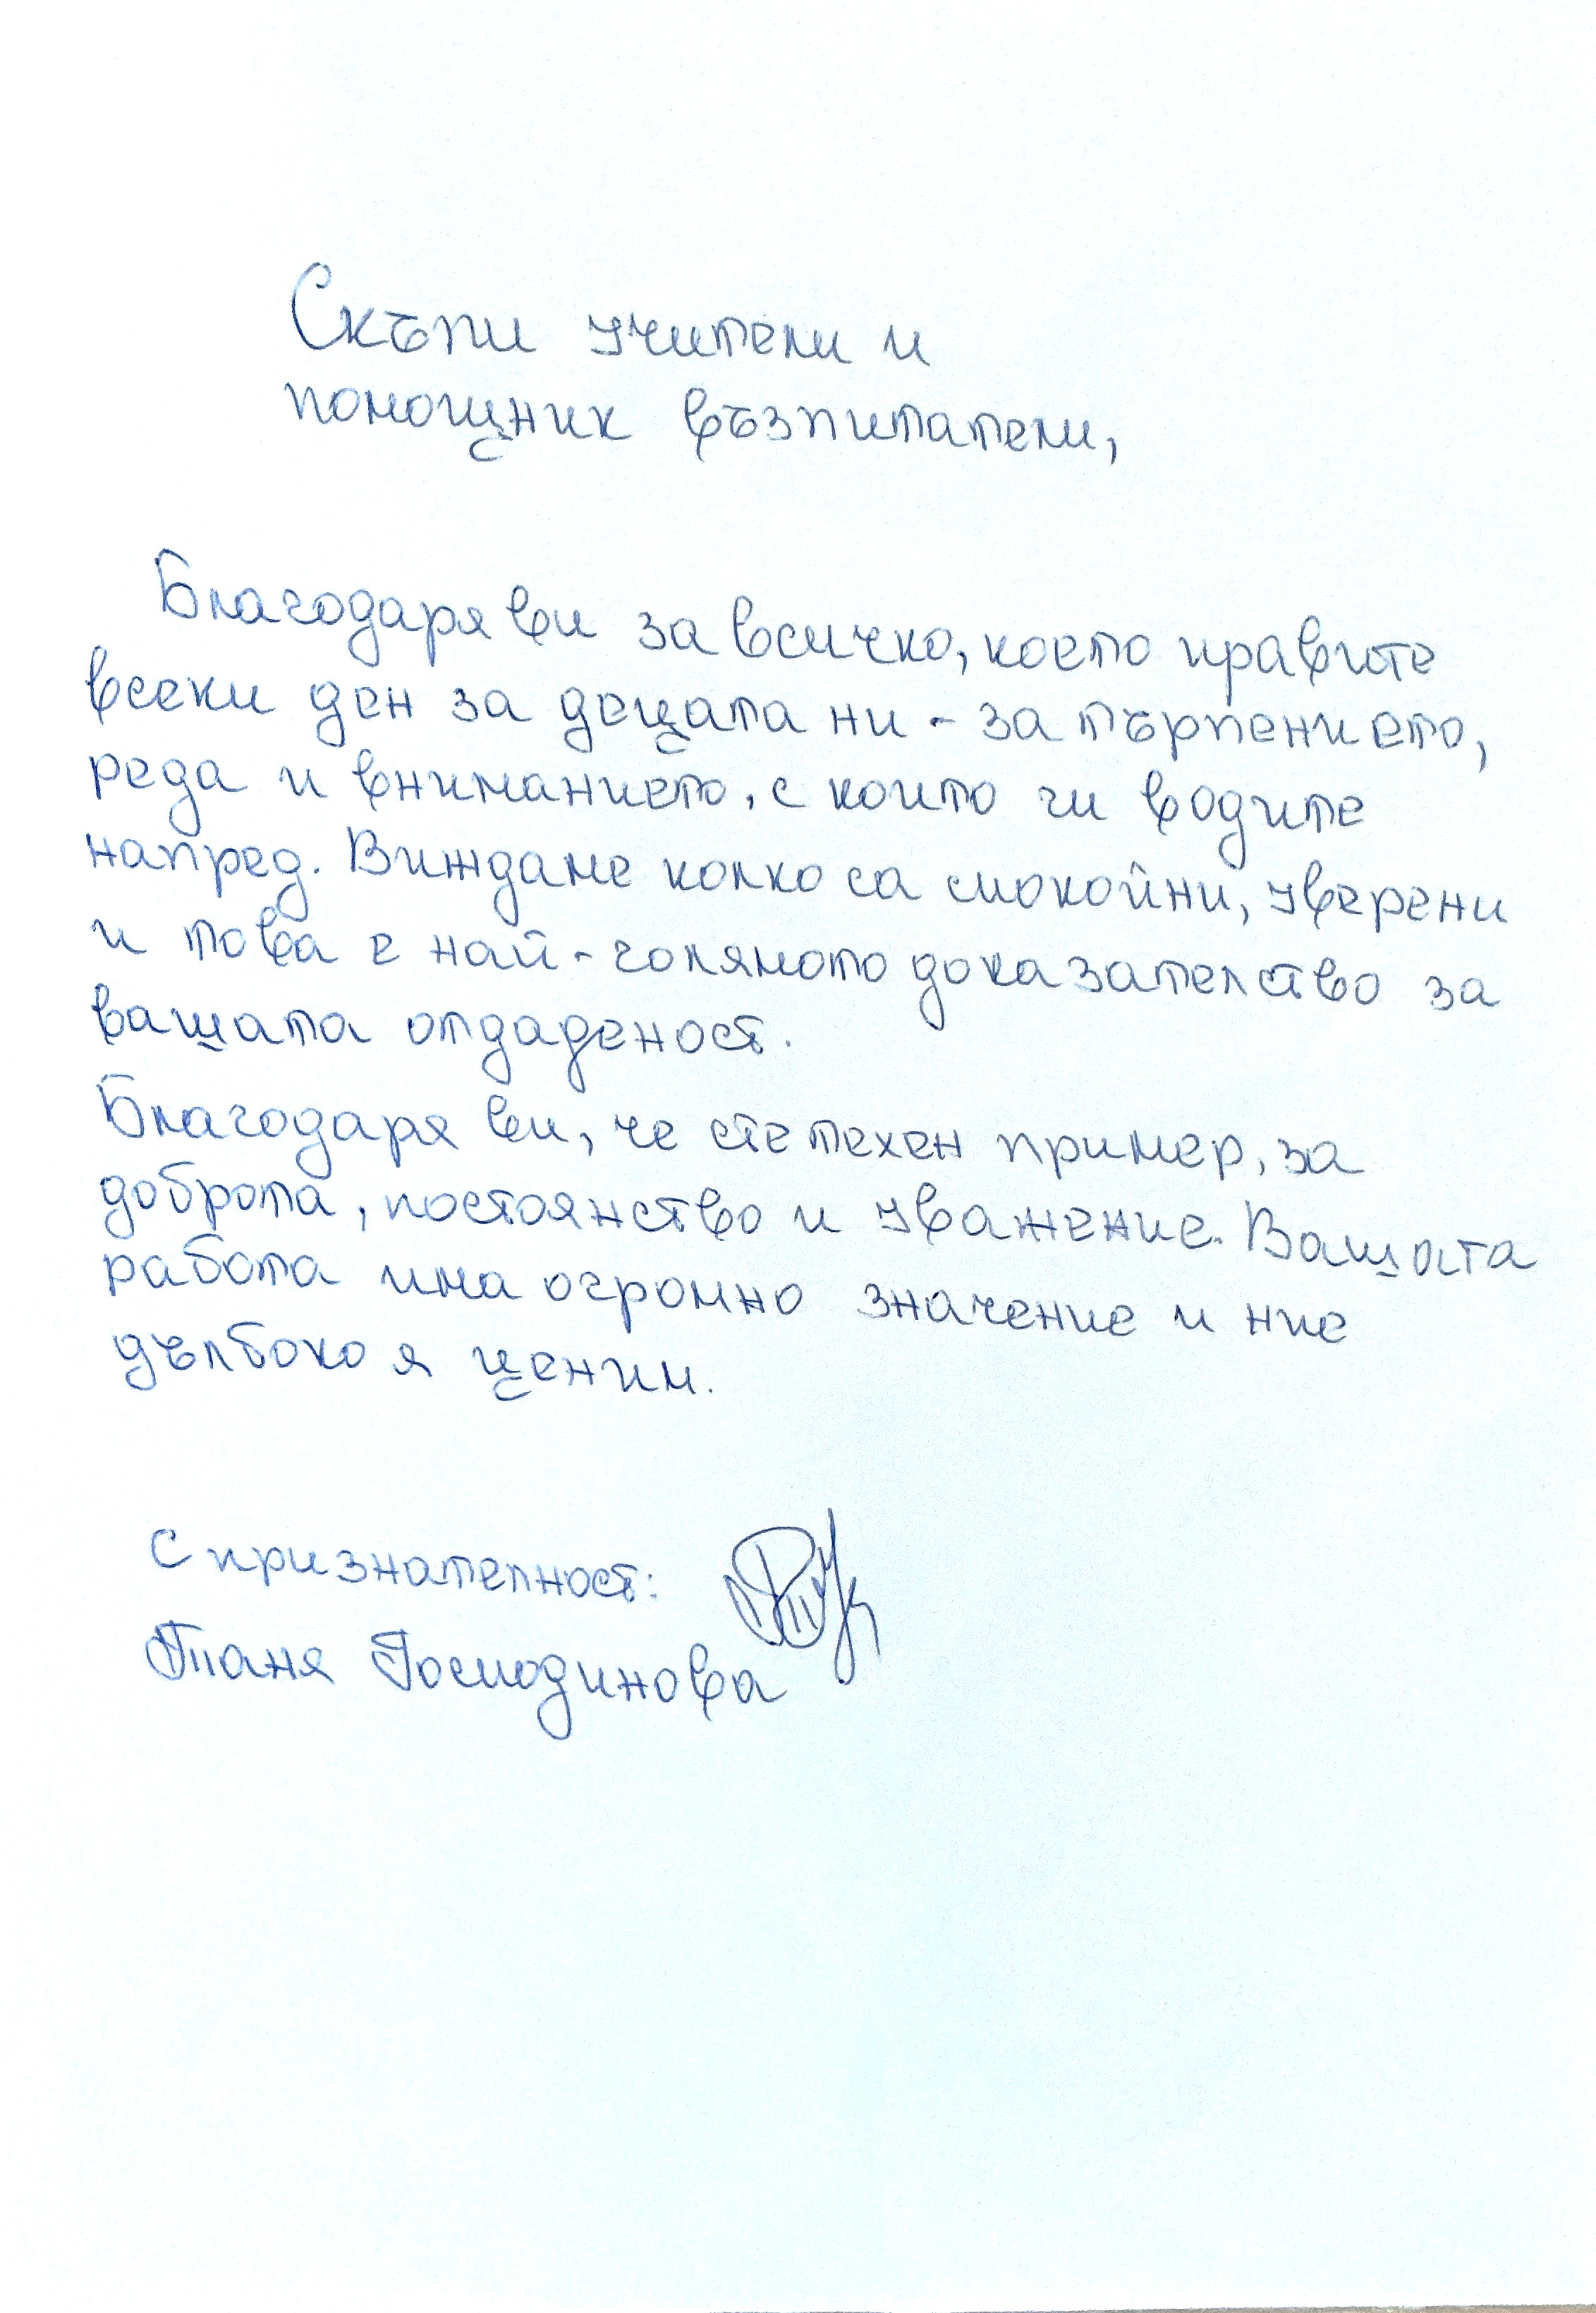 Скъпи учители и
помощник възпитатели,
Благодаря ви за всичко, което правите
всеки ден за децата ни - за търпението,
реда и вниманието, с които ги водите
напред. Виждаме колко са спокойни, уверени
и това е най-голямото доказателство за
вашата отдаденост.
Благодаря ви, че сте техен пример, за
доброта, постоянство и уважение. Вашата
работа има огромно значение и ние
дълбоко я ценим.
С признателност:
Таня Господинова